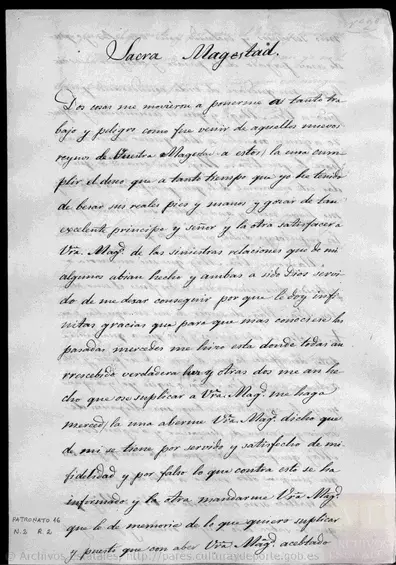 Sacra Magestad.
Dos cosas me movieron a ponerme a tanto tra
bajo y peligro como fue venir de aquellos nuevos
reynos de Vuestra Magestad a estos la una cum
plir el deseo que a tanto tiempo que yo he tenido
de besar sus reales pies y manos y gozar de tan
excelente principe y señor y la otra satisfacer a
Vra. Magd. de las siniestras relaciones que de mi
algunos abian hecho y ambas a sido Dios servido
do de me dexar conseguir por que le doy infi
nitas gracias que para que mas conociese las
pasadas mercedes me
recebido verdadera y otras dos me an he
cho que ose suplicar a Vra. Magd. me haga
merced la una aberme Vra. Magd. dicho que
de mi se tiene por servido y satisfecho de mi
fidelidad y por falso lo que contra esto se ha
informado y la otra mandarme Vra. Magd.
que le de memoria de lo que quiero suplicar
y puesto que con aber Vra. Magd. acebtado
PATRONATO 16
N. 2 R. 2
© Archivos Estatales, http://pares.culturaydeporte.gob.es